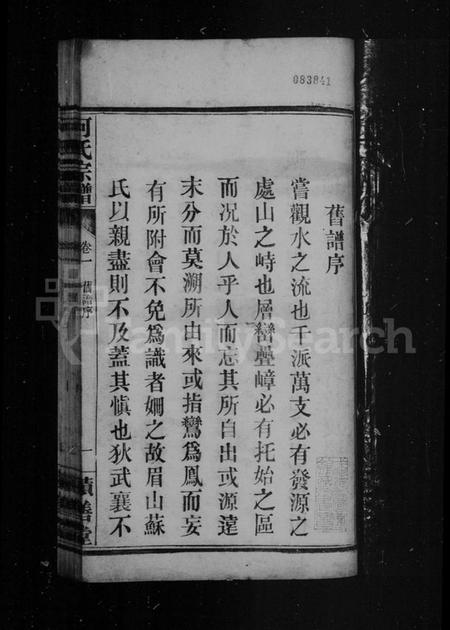 083841
舊譜序
嘗觀水之流也千派萬支必有發源之
處山之峙也層巒疊嶂必有托始之區
而况於人乎人而忘其所自出或源遠
末分而莫溯所由來或指鸞爲鳳而妄
有所附會不免爲識者姍之故眉山蘇
氏以親盡則不及蓋其愼也狄武襄不
何氏宗譜
卷一
舊譜序
一
積善堂
FamilySearch